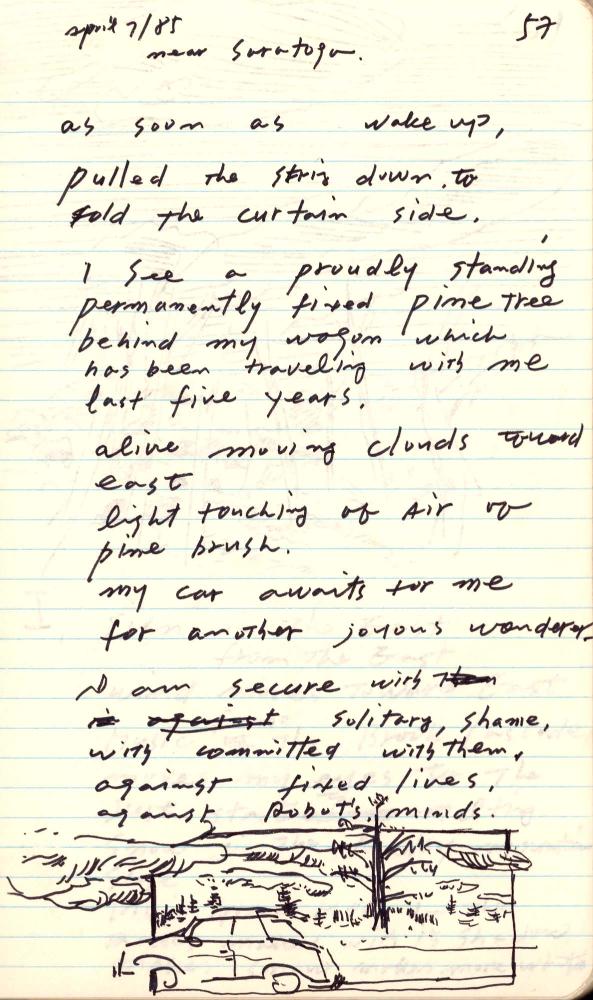 april 7/85
57
near Saratoga.
as soon as wake up,
pulled the string down, to
fold the curtain side.
I see a proudly standing
permanently fixed pine tree
behind my wagon which
has been traveling with me
last five years.
alive moving clouds toward
east
light touching of Air of
pine brush.
my car awaits for me
for another joyous wonderer.
I am secure with them
is against solitary, shame,
with committed with them,
against fixed lives,
against Robot's minds.